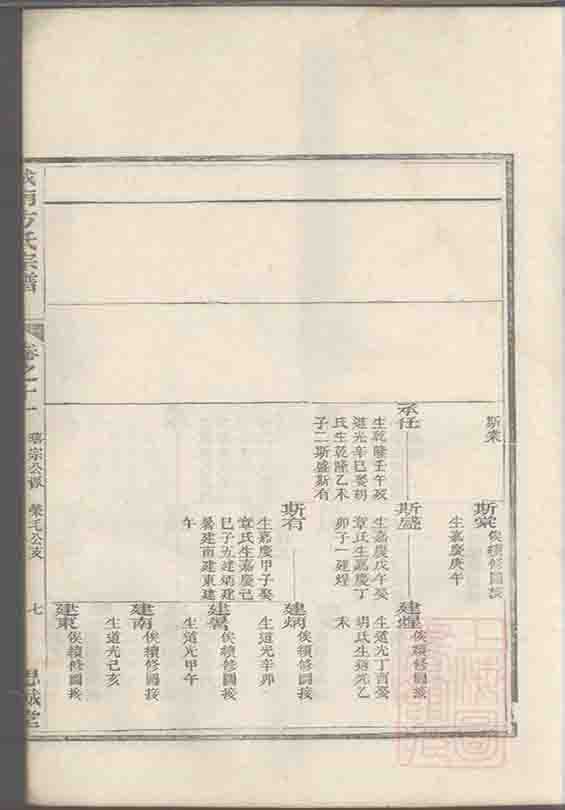 斯棠
承任
生乾隆壬午歿
道光辛巳娶胡
氏生乾隆乙未
子二斯盛斯有
斯棠
俟續修圖接
生嘉慶庚午
斯盛
生嘉慶戊午娶
章氏生嘉慶丁
卯子一建煌
斯有
生嘉慶甲子娶
章氏生嘉慶己
巳子五建炳建
馨建南建東建
午
建煌
俟續修圖接
生道光丁酉娶
胡氏生道光乙
未
建炳
俟續修圖接
生道光辛卯
建馨
俟續修圖接
生道光甲午
建南
俟續修圖接
生道光己亥
建東
俟續修圖接
城南方氏宗譜
卷之十一
宗公派
榮七公支
七
思誠堂